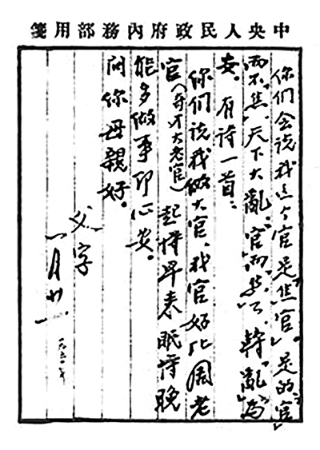 中央人民政府內務部用箋
你们会说我这个官是“焦官”。是的“官”
而不“焦”，天下大亂。“官”而“焦”了，轉“亂”为
安。有诗一首：
你们说我做大官，我官好比周老
官（奇才大老官）起得早来眠得晚
能多做事即心安。
问你母親好。
父字
一月廿一